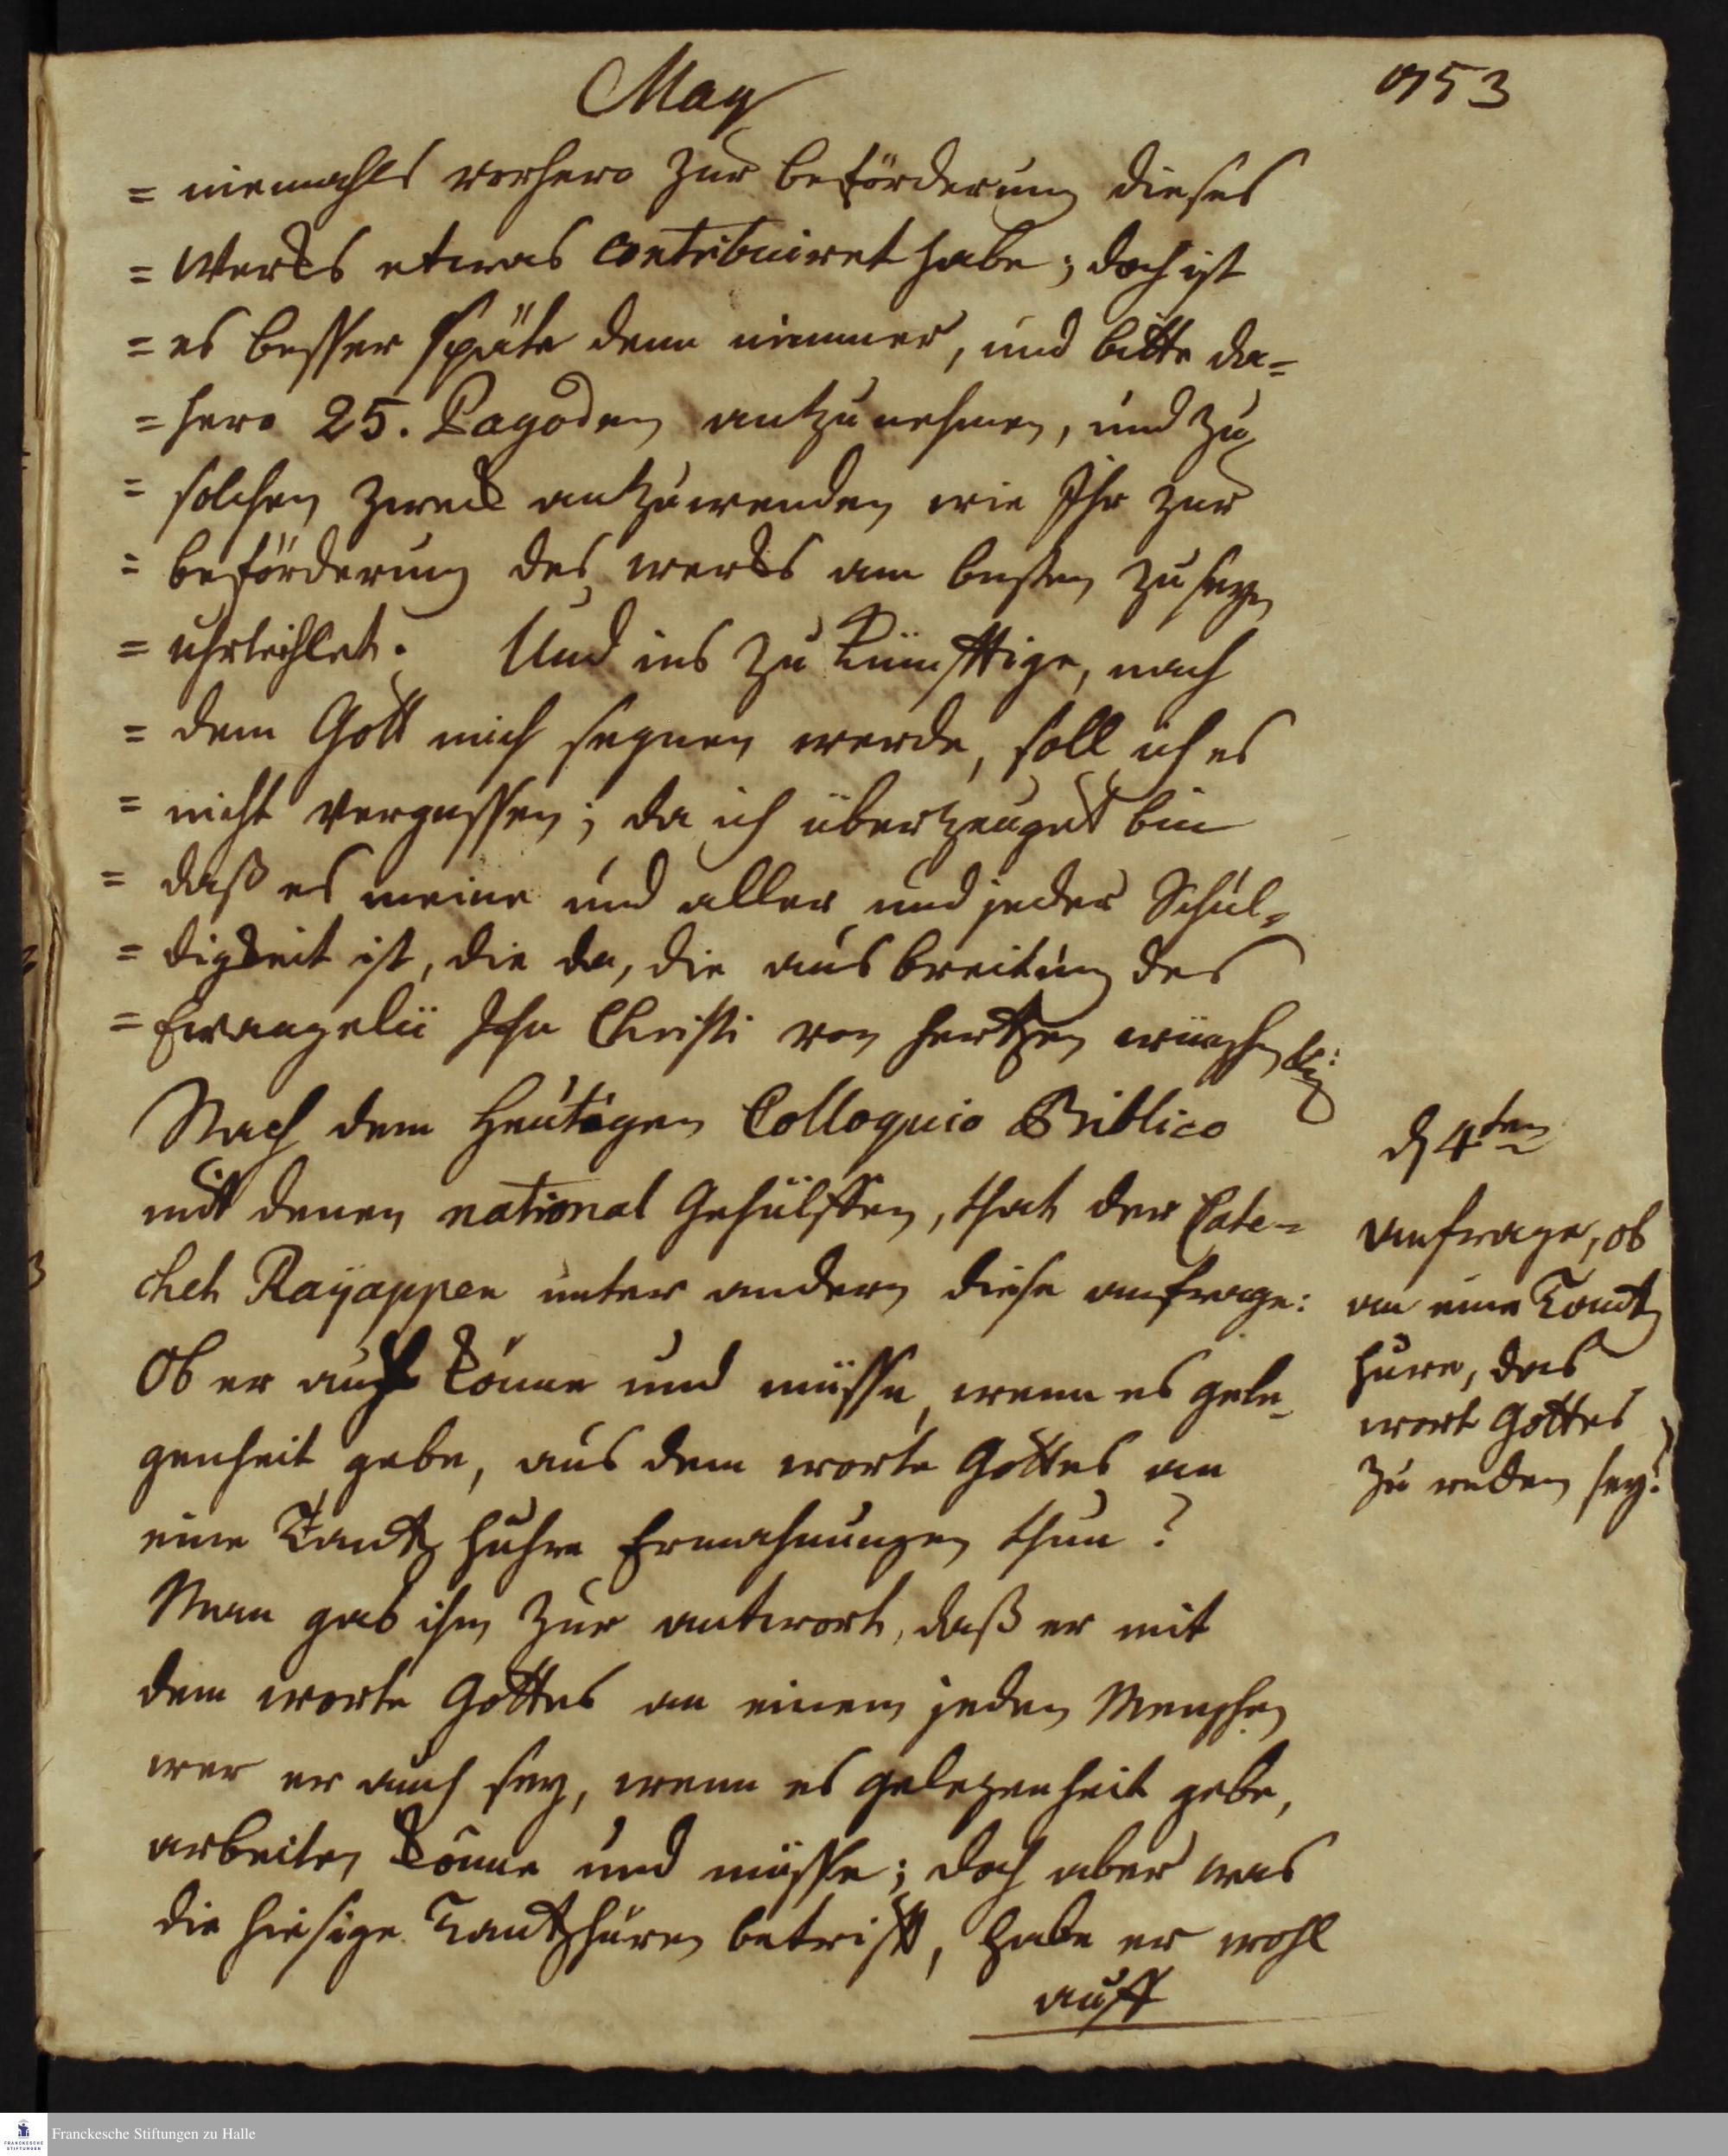 May
1753
= niemahls vorhero zur beförderung dieses
= Wercks etwas contribuiret habe; doch ist
= es besser späte denn nimmer, und bitte da=
= hero 25. Pagoden antzunehmen, und zu
= solchen zweck antzuwenden wie Ihr zur
= beförderung des wercks am besten zu seyn
= uhrteihlet. Und ins zu künfftige, nach
= dem Gott mich segnen werde, soll ich es
= nicht vergessen; da ich übertzeuget bin
= daß es meine und aller und jeder Schul=
= digkeit ist, die da, die ausbreitung des
= Evangelii Jesu Christi von hertzen wünschen &c:
Nach dem heutigen Colloquio Biblico
mit denen national Gehülffen, that der Cate=
chet Rayappen unter andern diese anfrage:
Ob er auch könne und müsse, wenn es gele=
genheit gebe, aus dem worte Gottes an
eine Tantz huhre Ermahnungen thun?
Man gab ihm zur antwort, daß er mit
dem worte Gottes an einem jeden Menschen
wer er auch sey, wenn es gelegenheit gebe,
arbeiten könne und müsse; doch aber was
die hiesige Tantzhuren betrifft, habe er wohl
auff
d 4ten
anfrage, ob
an eine Tantz
hure, das
wort Gottes
zu reden sey?
Franckesche Stiftungen zu Halle
FRANCKESCHE
STIFTUNGEN